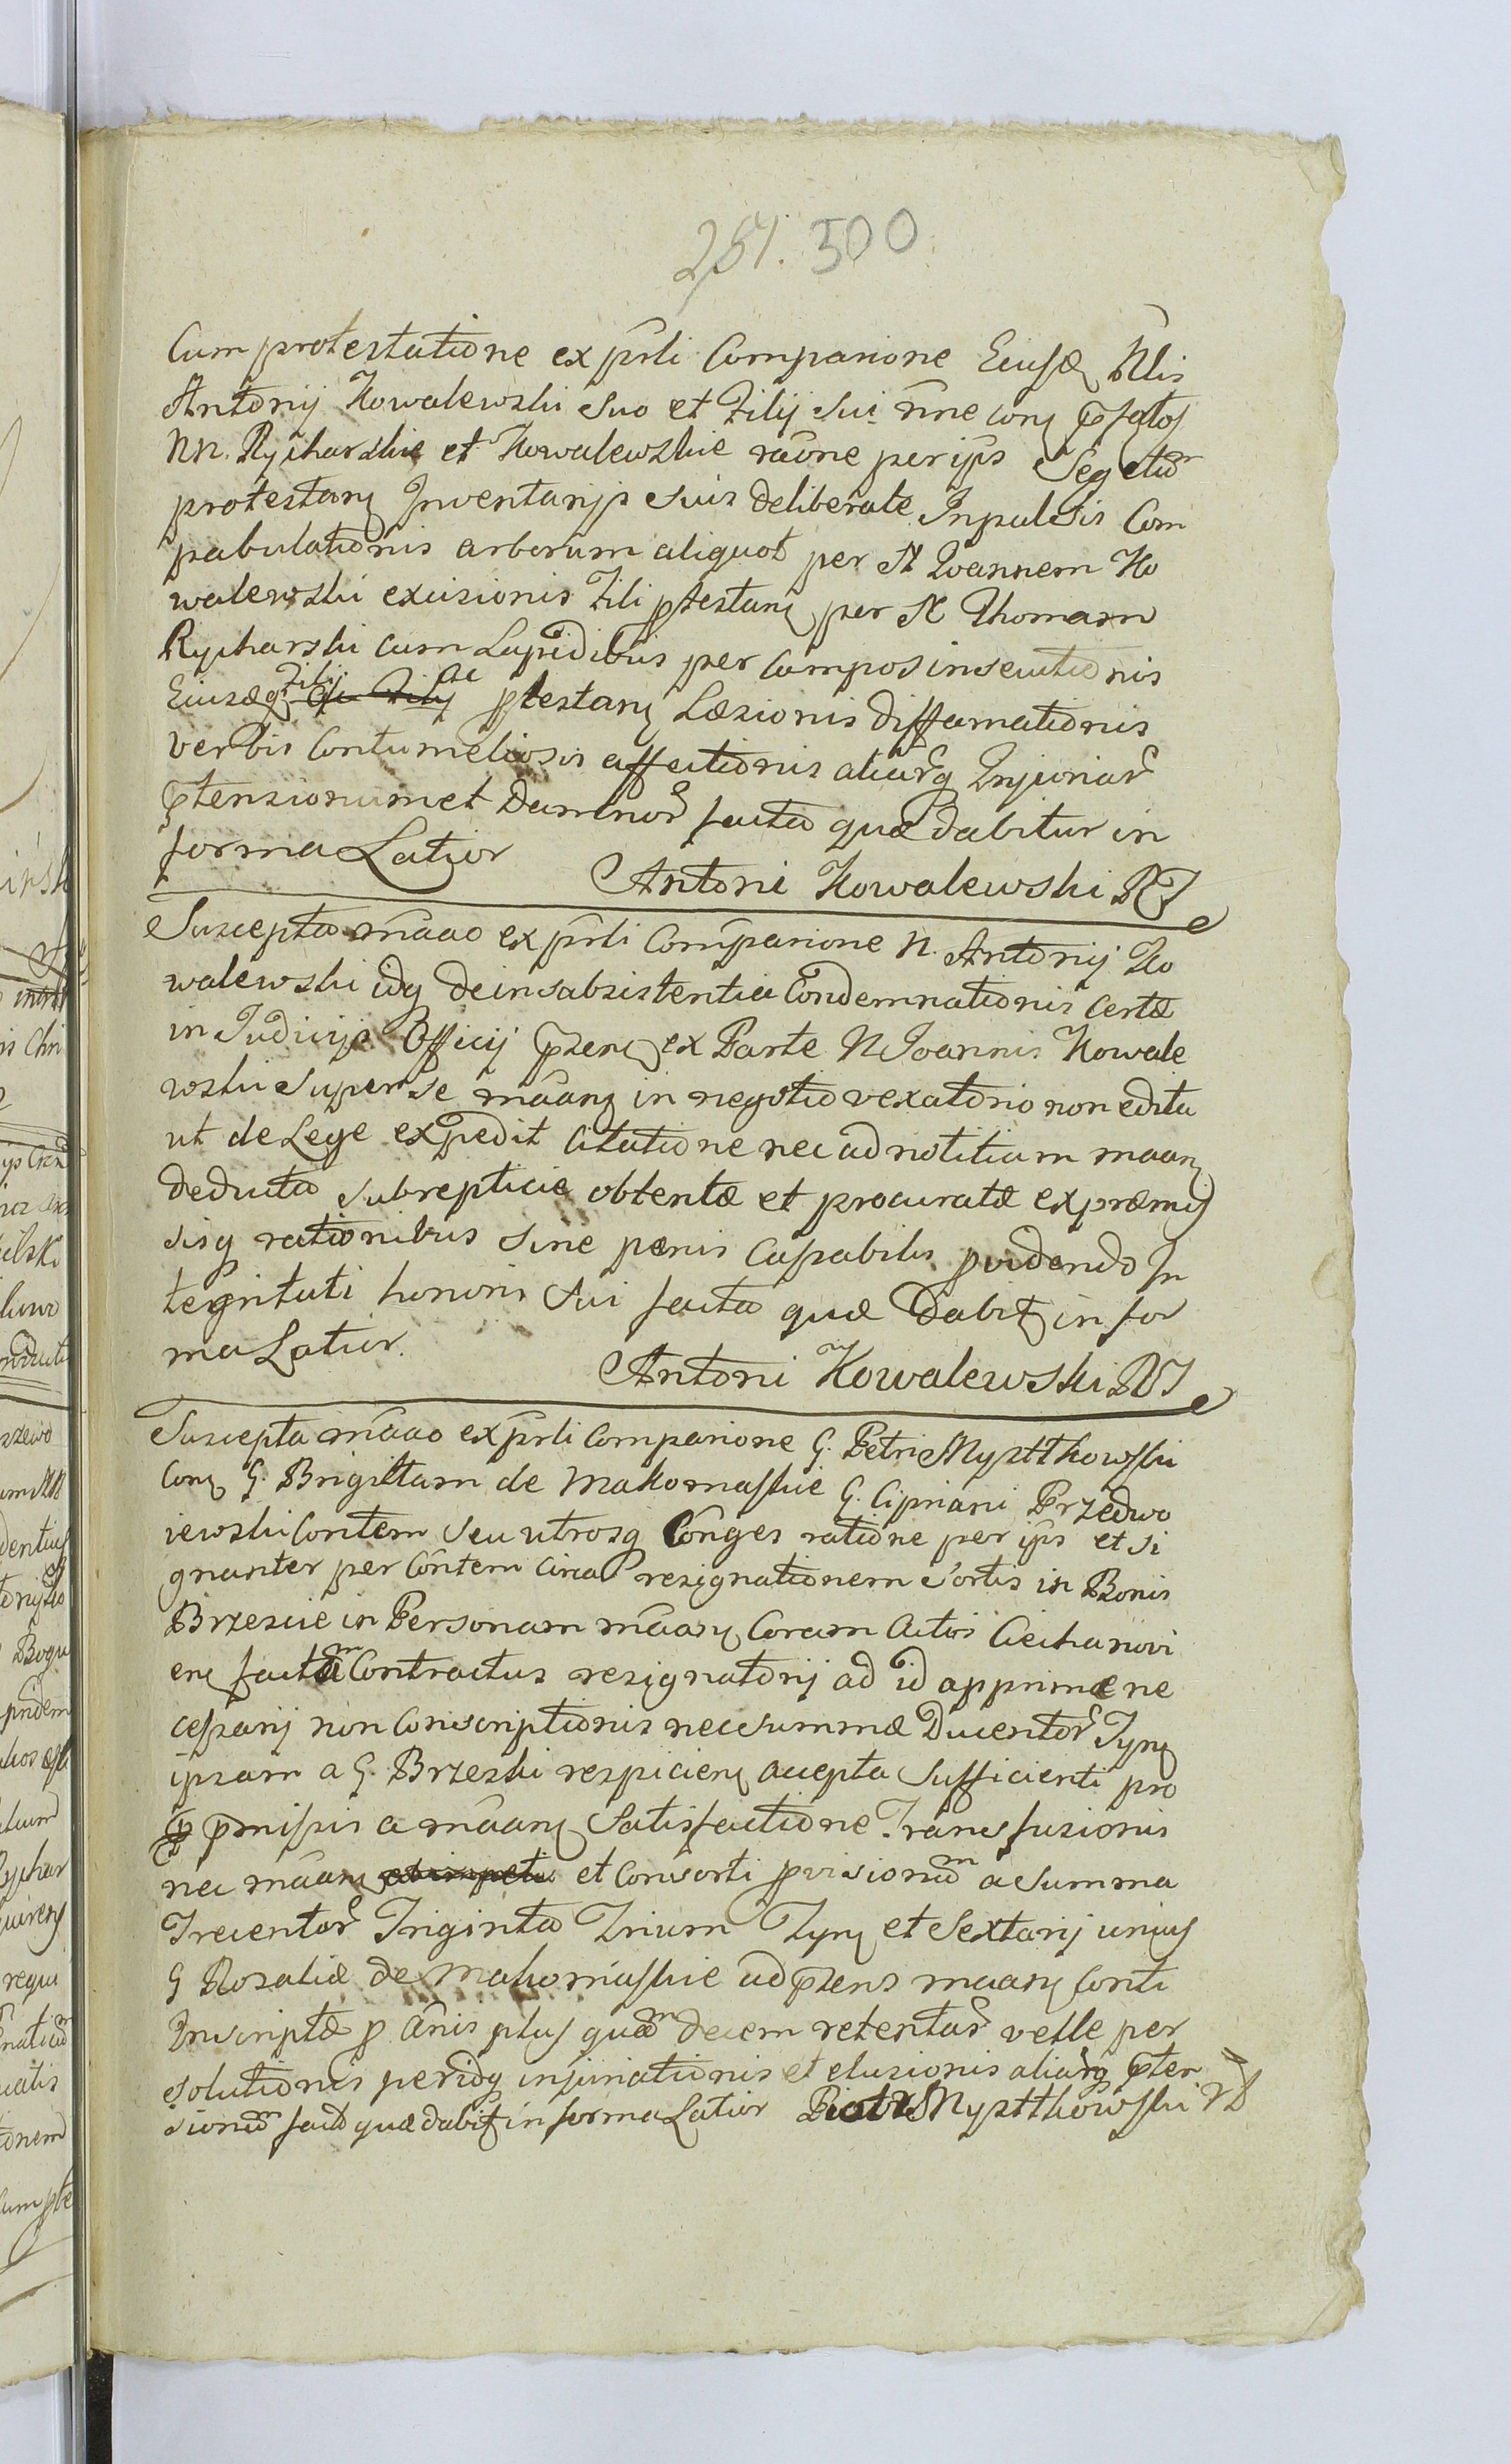 251. 300
Cum protestatione ex prli Comparione Eiusd Nlis
Antonij Kowalewski suo et Filij sui nne con pfatos
NN. Rycharskie et Kowalewskie raone per ips Segetum
protestan Inventarijs suis deliberate Inpulsis Com
pabulationis arborum aliquot per N Joannem Ko
walewski excisionis Fili ptestan per N Thomam
Rycharski cum Lapidibus per campos insecutionis
Eiusdq Filij ac ptestan Læsionis diffamationis
verbis Contumeliosis affectionis aliarq Injuriar
ptensionum et Damnor facta quæ dabitur in
forma Latior
Antoni Kowalewski
Suscepta maao ex prli Comparione N. Antonij Ko
walewski idq de insubsistentia Condemnationis certæ
in Judicijs Officij pzen ex Parte N Joannis Kowale
wski super se maan in negotio vexatorio non edita
ut de Lege expedit Citatione nec ad notitiam maan
deducta subrepticie obtentæ et procuratæ ex præmis
sisq rationibus sine pænis Capabilis pvidendo In
tegritati honoris sui facta quæ dabit in for
ma Latior.
Antoni Kowalewski
Suscepta maao ex prli Comparione G. Petri Mystkowski
Con G. Brigittam de Makomaskie G. Cipriani Przedwo
iewski Contem seu utrosq Conges ratione per ips et si
gnanter per Contem circa resignationem Sortis in Bonis
Brzescie in Personam maan Coram Actis Ciechanovi
en factam Contractus resignatorij ad id apprime ne
cessarij non Conscriptionis nec summæ Ducentor Tyn
ipsam a G. Brzeski respicien accepta Sufficienti pro
pmissis a maan Satisfactione Transfusionis
nec maan et Consorti pvisionum a Summa
Trecentor Triginta Trium Tyn et Sextarij unius
G Rosaliæ de Makomaskie ad pzens maan Conti
Inscriptæ p Anis plus quam decem retentar velle per
solutionis peridq injuriationis et elusionis aliarq pten
sionum facta quæ dabit in forma Latior Piotr Mystkowski